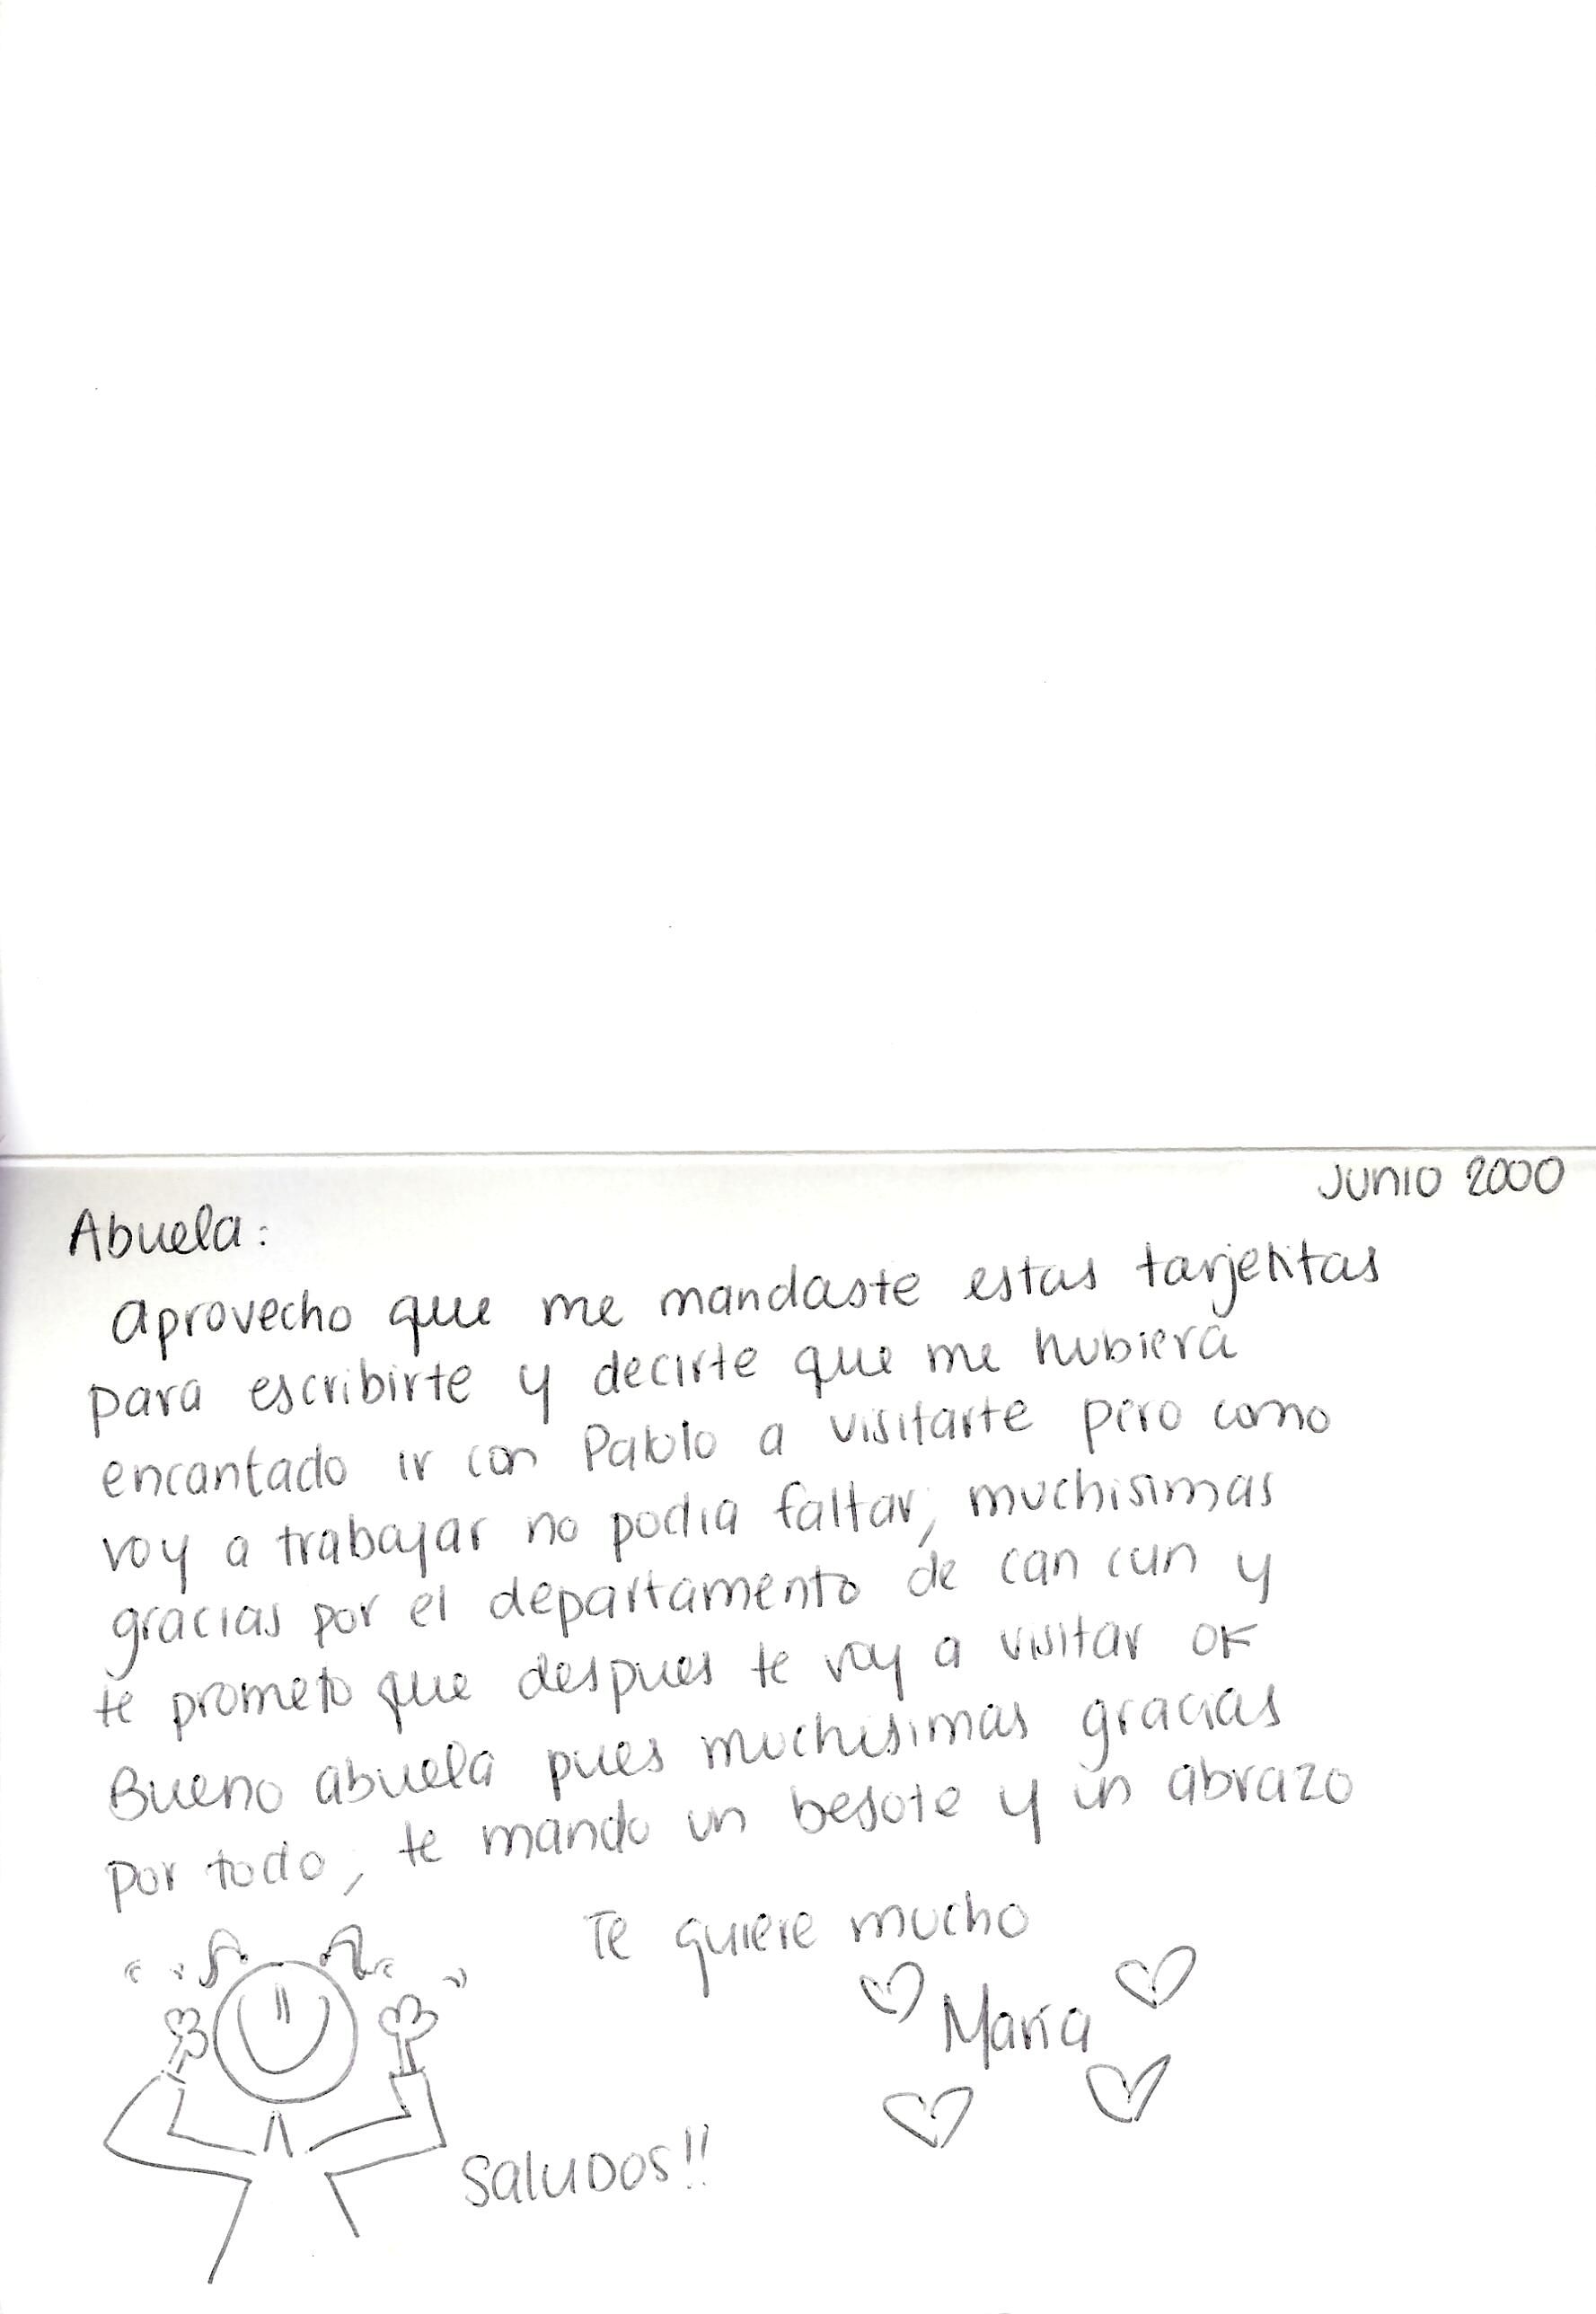 JUNIO 2000
Abuela:
aprovecho que me mandaste estas tarjetitas
para escribirte y decirte que me hubiera
encantado ir con Pablo a visitarte pero como
voy a trabajar no podia faltar, muchisimas
gracias por el departamento de can cun y
te prometo que despues te voy a visitar OK
Bueno abuela pues muchisimas gracias
por todo, te mando un besote y un abrazo
Te quiere mucho
María
SaluDos!!